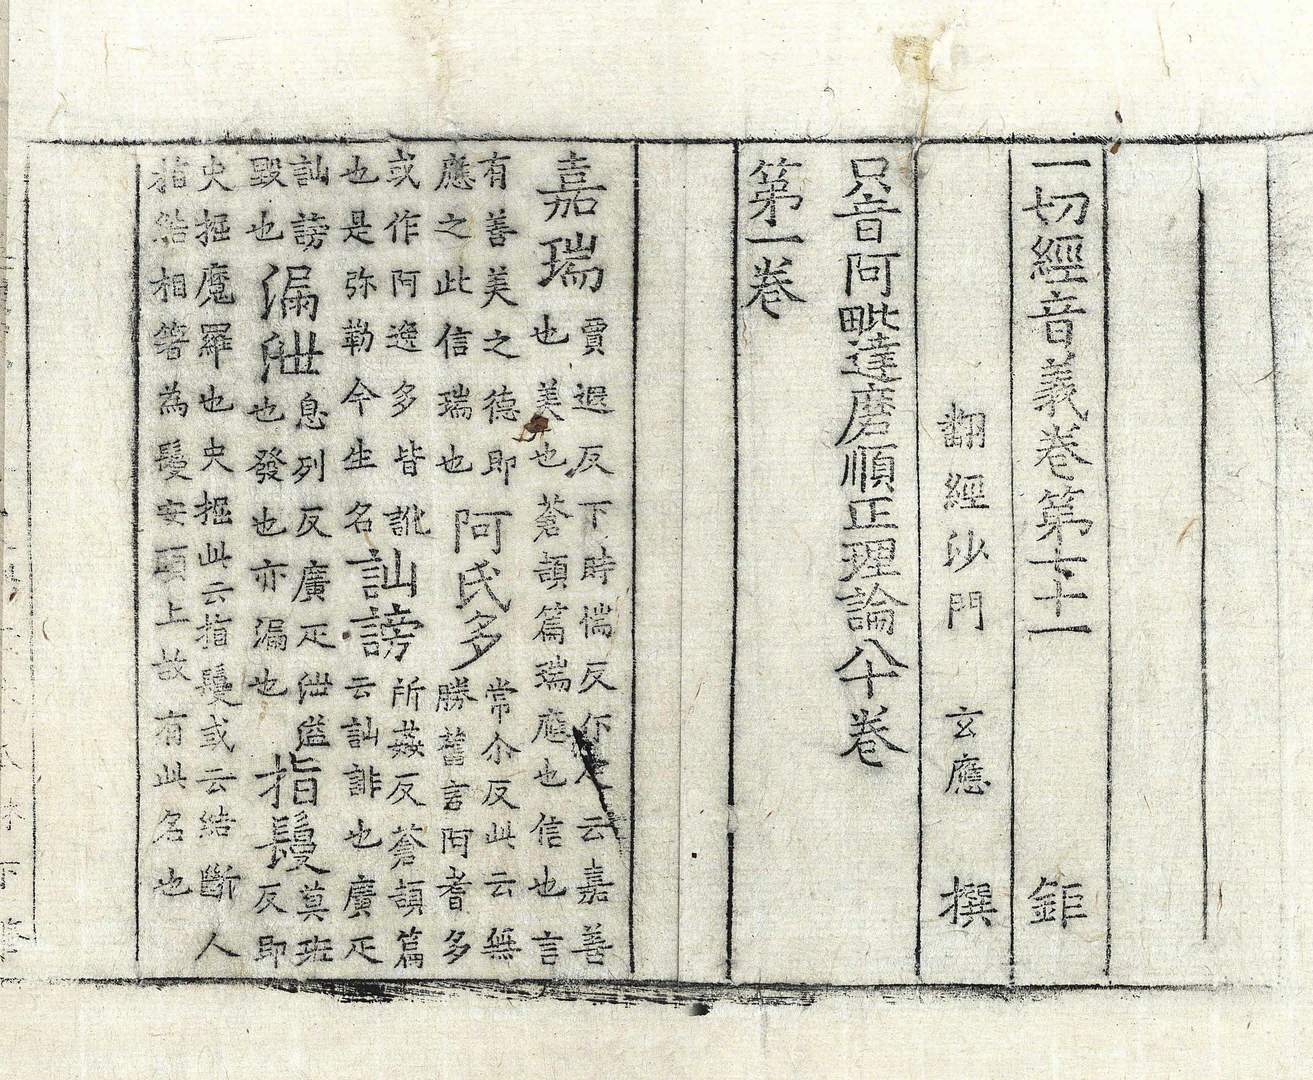 一切經音義卷第七十一 鉅
翻經沙門 玄應 撰
只音阿毗達磨順正理論八十卷
第一卷
嘉瑞
賈遐反下時惴反尒疋云嘉善
也美也蒼頡篇瑞應也信也言
有善美之德即
應之此信瑞也
阿氏多
常尒反此云無
勝舊言阿耆多
或作阿逸多皆訛
也是弥勒今生名
訕謗
所姦反蒼頡篇
云訕誹也廣疋
訕謗
毀也
漏泄
息列反廣疋泄溢
也發也亦漏也
指鬘
莫班
反即
央掘魔羅也央掘此云指鬘或云結斷人
指結相箸為鬘安頭上故有此名也